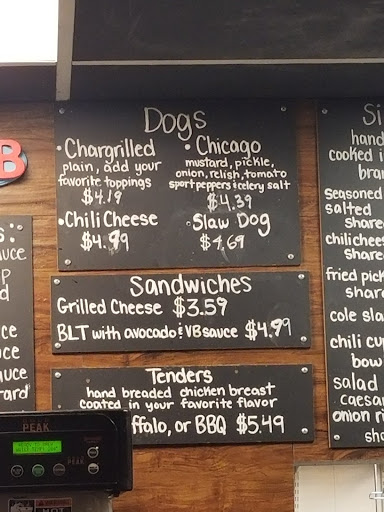 B
Dogs
• Chargrilled
plain, add your
favorite toppings
$4.19
• Chicago
mustard, pickle,
onion, relish, tomato
sport peppers & celery salt
$4.39
• Chili Cheese
$4.99
• Slaw Dog
$4.69
Sandwiches
Grilled Cheese $3.59
BLT with avocado & VB sauce $4.99
Tenders
hand breaded chicken breast
coated in your favorite flavor
ffalo, or BBQ $5.49
Si
hand
cooked i
bra
seasoned
salted
share
chili chees
share
fried pick
shar
cole sla
chili cu
bow
salad
caesar
onion ri
sh
s:
uce
p
d
ce
ce
uce
ard
PEAK